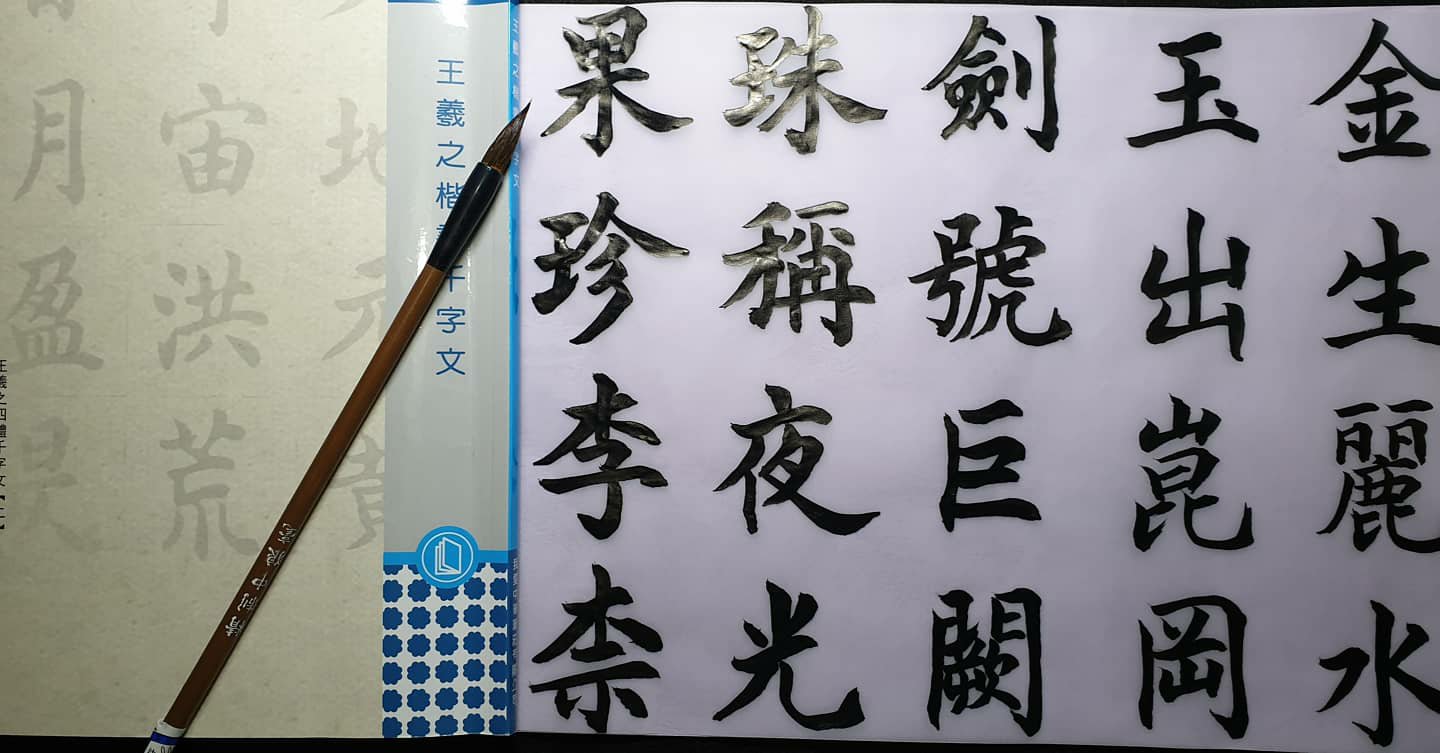 金生麗水
玉出崑岡
劍號巨闕
珠稱夜光
果珍李柰
王羲之楷書千字文
地元黃
宙洪荒
月盈昃
王羲之四體千字文